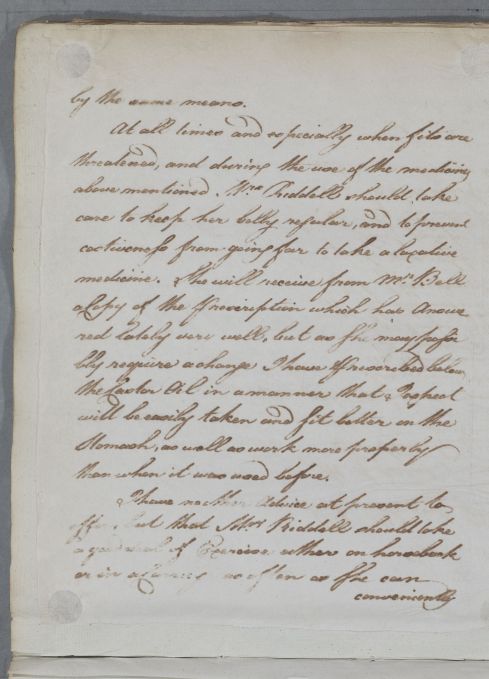 by the same means.
At all times and especially when fits are
threatened, and during the use of the medicines
above mentioned, Mrs Riddell should take
care to keep her belly regular, and to prevent
costiveness from going far to take a laxative
medicine. She will receive from Mr Bell
a Copy of the Prescription which has Answe
red lately very well, but as She may possi
bly require a change I have Prescribed below
the Castor Oil in a manner that I expect
will be easily taken and sit better on the
Stomach, as well as work more properly
than when it was used before.
I have no other Advice at present to
offer, but that Mrs Riddell should take
a good deal of Exercise either on horseback
or in a Carriage as often as She can
conveniently